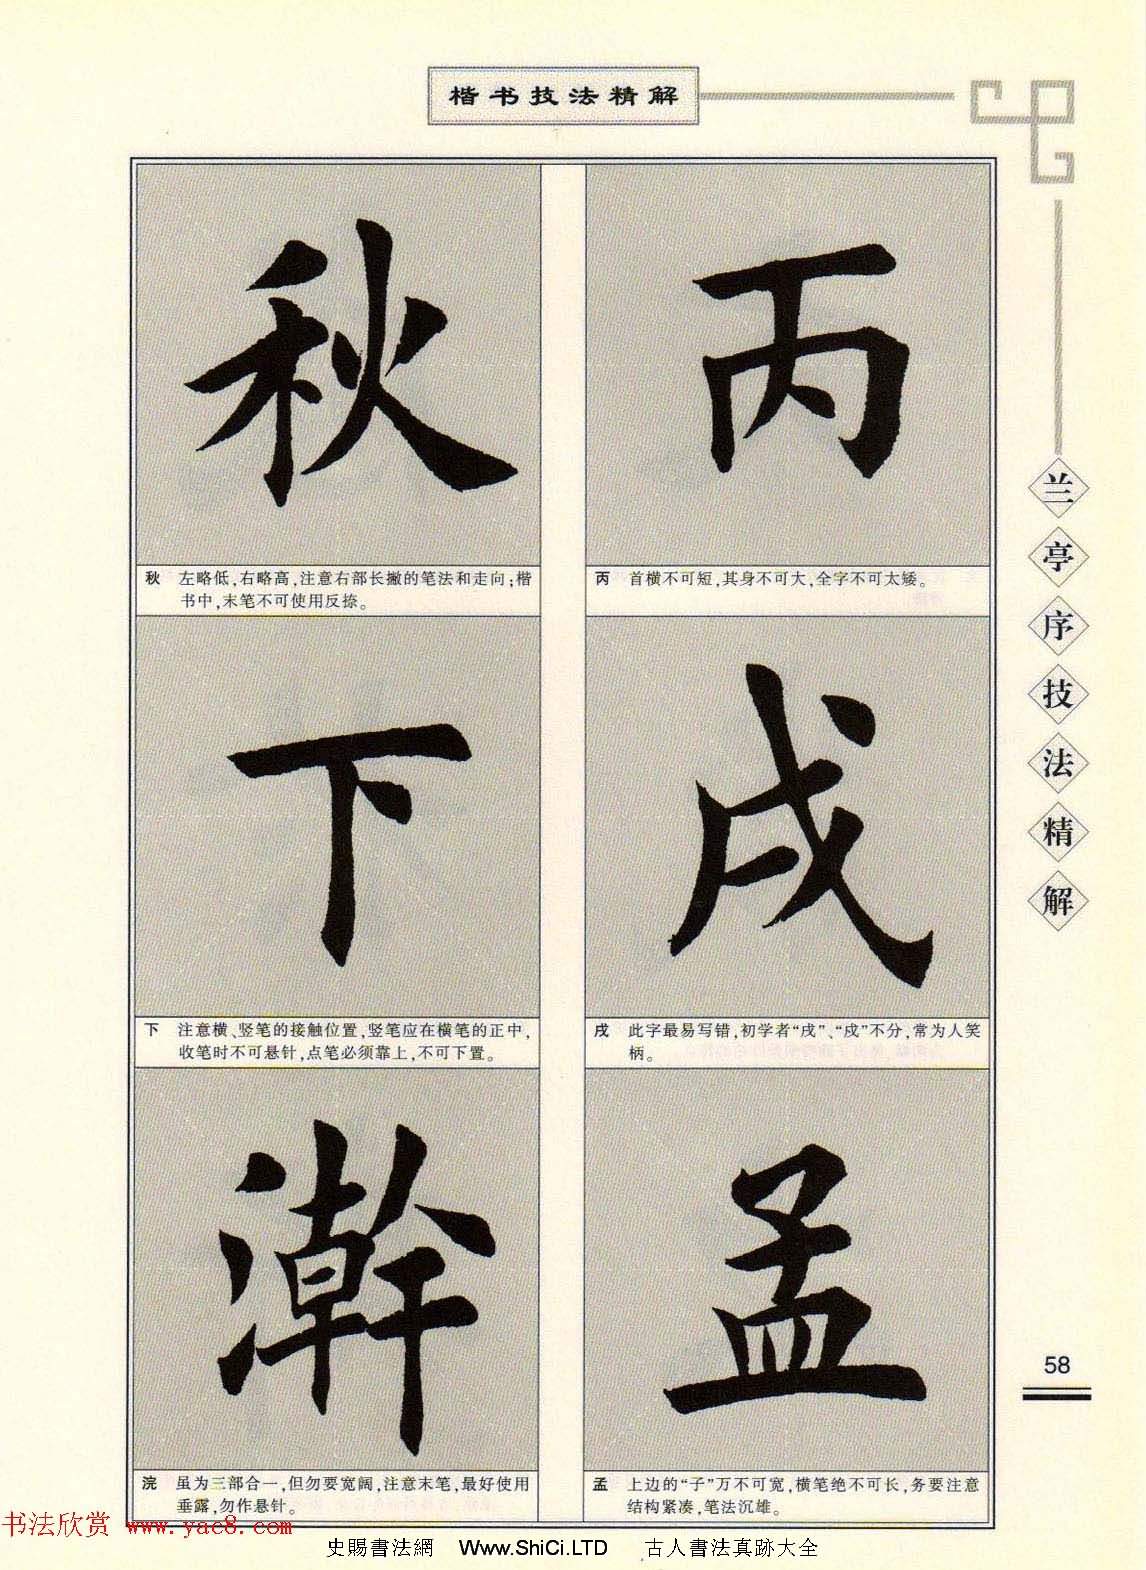 楷书技法精解
丙
丙 首横不可短,其身不可大,全字不可太矮。
戌
戌 此字最易写错,初学者“戌”、“戍”不分,常为人笑
柄。
孟
孟 上边的“子”万不可宽,横笔绝不可长,务要注意
结构紧凑,笔法沉雄。
秋
秋 左略低,右略高,注意右部长撇的笔法和走向;楷
书中,末笔不可使用反捺。
下
下 注意横、竖笔的接触位置,竖笔应在横笔的正中,
收笔时不可悬针,点笔必须靠上,不可下置。
澣
浣 虽为三部合一,但勿要宽阔,注意末笔,最好使用
垂露,勿作悬针。
兰亭序技法精解
58
书法欣赏 www.yac8.com
史賜書法網 Www.ShiCi.LTD 古人書法真跡大全